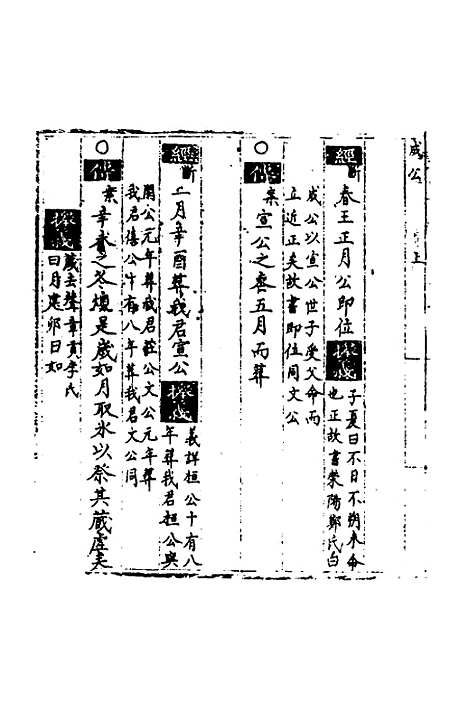 成公 上
經 斷 春王正月公即位 
子夏曰不日不朔未命
也正故書滎陽鄭氏曰
成公以宣公世子受父命而
立近正矣故書即位同文公
○傳
案宣公之喪五月而葬
經 斷 二月辛酉葬我君宣公
義詳桓公十有八
年葬我君桓公與
閔公元年葬我君莊公文公元年葬
我君僖公十有八年葬我君文公同
○傳
案辛卦之冬燠是歲如月取氷以祭其藏虛矣
歲去聲章貢李氏
曰月建卯日如